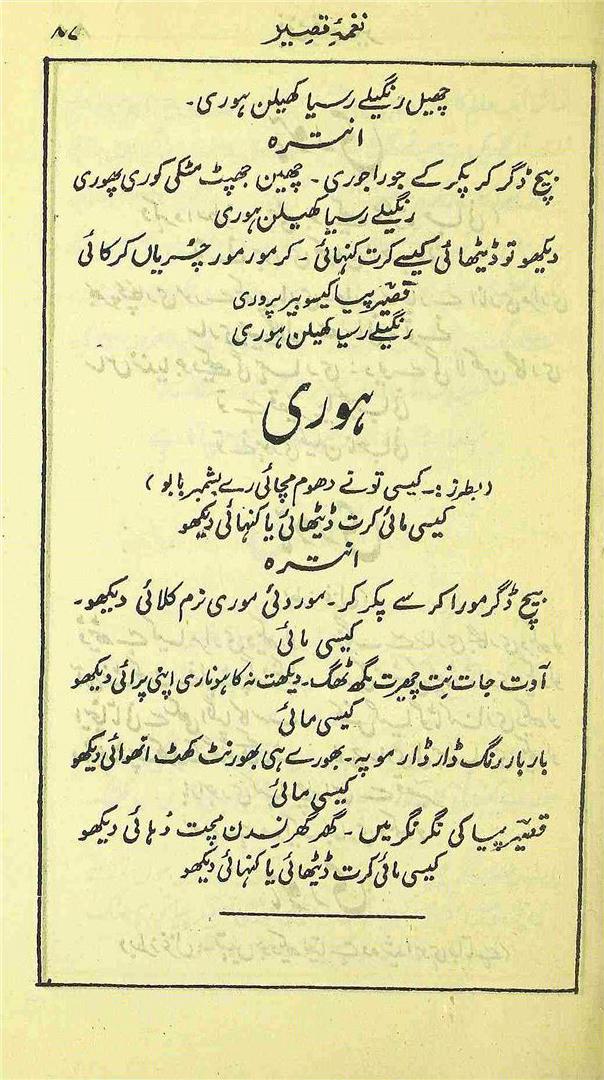 نغمۂ قصیر
۸۷
چھیل رنگیلے رسیا کھیلن ہوری۔
انترہ
بیچ ڈگر کر پکر کے جورا جوری۔ چھین جھپٹ مٹکی کوری پھوری
رنگیلے رسیا کھیلن ہوری
دیکھو تو ڈیٹھائی کیسے کرت کنہائی۔ کر مور مور چُریاں کرکائی
قصیرؔ پیا کیسو بیر پروری
رنگیلے رسیا کھیلن ہوری
ہوری
(بطرز:۔ کیسی تو نے دھوم مچائی رے بشمبر بابو)
کیسی مائی کرت ڈیٹھائی یا کنہائی دیکھو
انترہ
بیچ ڈگر مورا کر سے پکر کر۔ موردئی موری نرم کلائی دیکھو۔
کیسی مائی
آوت جات نِت چھیرت مگھ ٹھگ۔ دیکھت نہ کاہو ناری اپنی پرائی دیکھو
کیسی مائی
بار بار رنگ ڈار ڈار موپہ۔ بھورے ہی بھور نٹ کھٹ انھوائی دیکھو
کیسی مائی
قصیرؔ پیا کی نگر نگر میں۔ گھر گھر نِسدن مچت دُہائی دیکھو
کیسی مائی کرت ڈیٹھائی یا کنہائی دیکھو